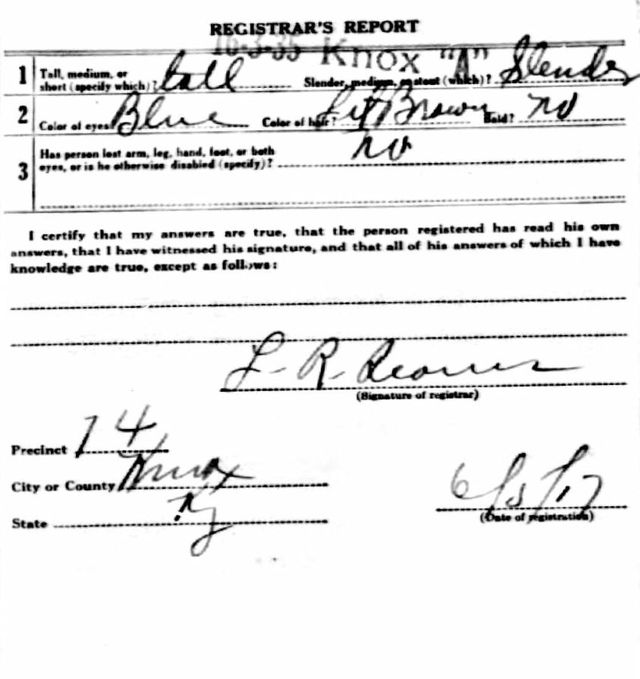 REGISTRAR'S REPORT
16-3-35 Knox "A"
1 Tall, medium, or short (specify which)? tall Slender, medium, or stout (which)? Slender
2 Color of eyes Blue Color of hair? Lt Brown Bald? no
3 Has person lost arm, leg, hand, foot, or both
eyes, or is he otherwise disabled (specify)? no
I certify that my answers are true, that the person registered has read his own
answers, that I have witnessed his signature, and that all of his answers of which I have
knowledge are true, except as follows:
L-R-
(Signature of registrar)
Precinct 74
City or County Knox
State Ky
6/5/17
(Date of registration)